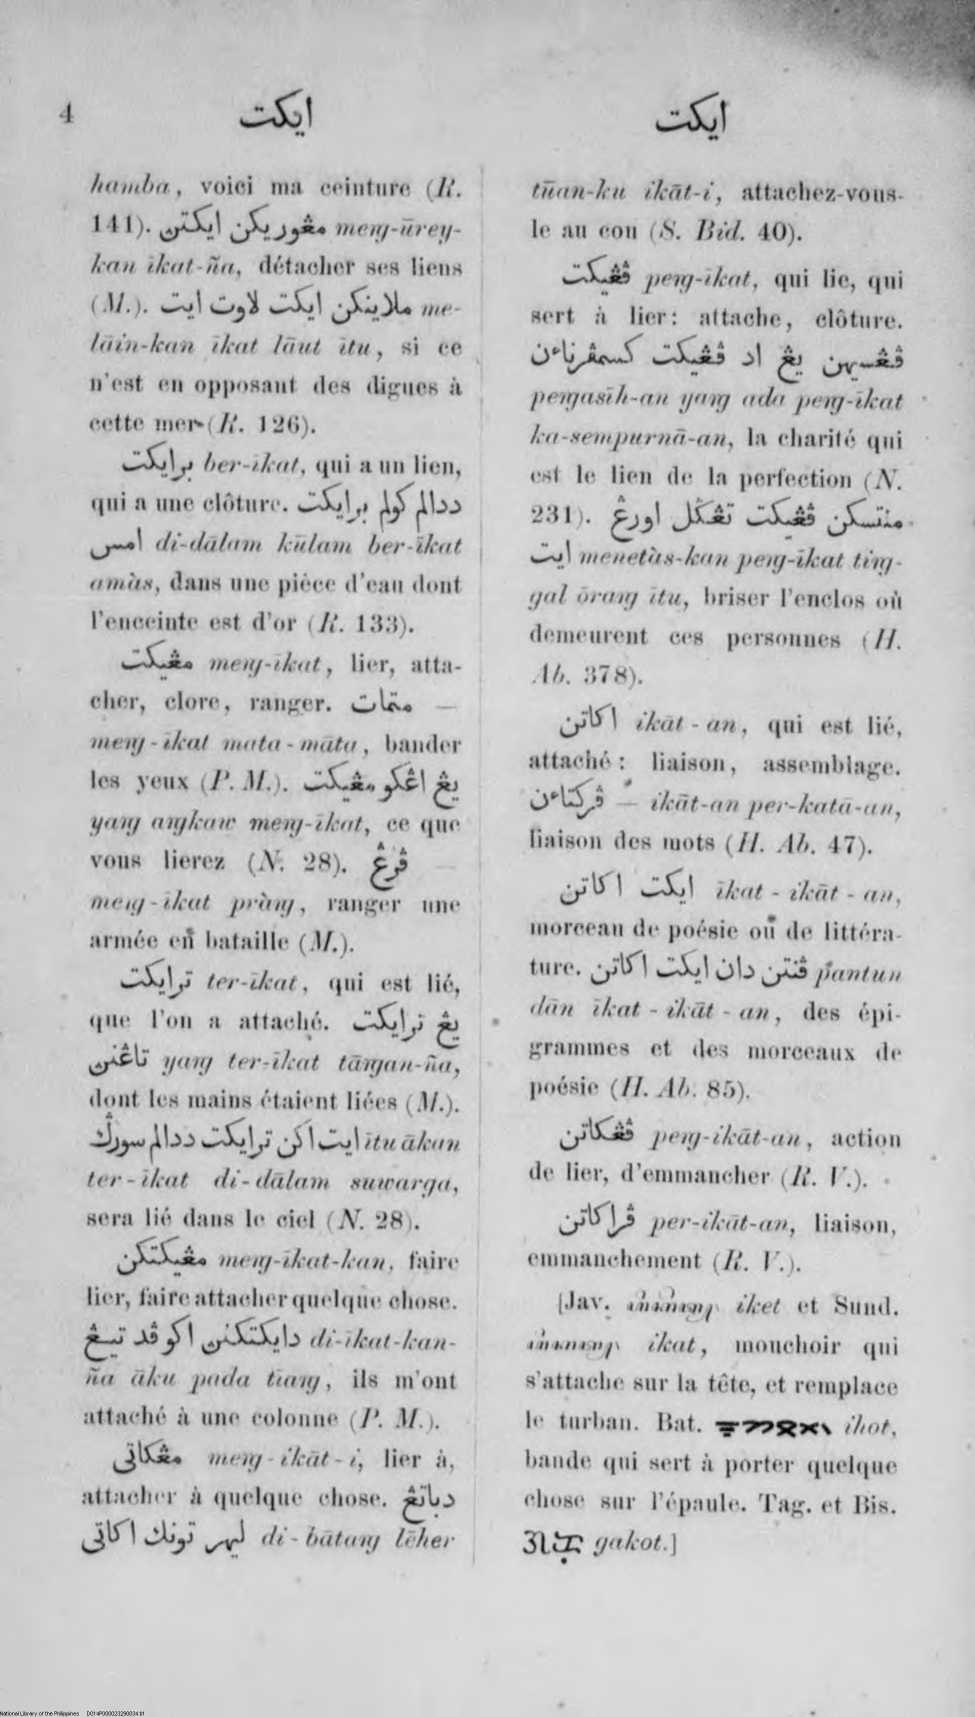 4
ايكت
ايكت
hamba, voici ma ceinture (R.
141). مڠوريكن ايكتن meŋ-ūrey-
kan īkat-ña, détacher ses liens
(M.). ملاينكن ايكت لاوت ايت me-
lāin-kan īkat lāut ītu, si ce
n'est en opposant des digues à
cette mer (R. 126).
برايكت ber-īkat, qui a un lien,
qui a une clôture. ددالم كولم برايكت
امس di-dālam kūlam ber-īkat
amàs, dans une pièce d'eau dont
l'enceinte est d'or (R. 133).
مڠيكت meŋ-īkat, lier, atta-
cher, clore, ranger. — متمات
meŋ-īkat mata-māta, bander
les yeux (P. M.). يڠ اڠكو مڠيكت
yaŋ aŋkaw meŋ-īkat, ce que
vous lierez (N. 28). ڤرڠ —
meŋ-īkat pràŋ, ranger une
armée en bataille (M.).
ترايكت ter-īkat, qui est lié,
que l'on a attaché. يڠ ترايكت
تاڠنن yaŋ ter-īkat tāŋan-ña,
dont les mains étaient liées (M.).
ايت اكن ترايكت ددالم سورݢ ītu ākan
ter-īkat di-dālam suwarga,
sera lié dans le ciel (N. 28).
مڠيكتكن meŋ-īkat-kan, faire
lier, faire attacher quelque chose.
دايكتكنن اكو ڤد تيڠ di-īkat-kan-
ña āku pada tīaŋ, ils m'ont
attaché à une colonne (P. M.).
مڠكاتي meŋ-ikāt-i, lier à,
attacher à quelque chose. دباتڠ
ليهر تونك اكاتي di-bātaŋ lēher
tūan-ku ikāt-i, attachez-vous-
le au cou (S. Bid. 40).
ڤڠيكت peŋ-īkat, qui lie, qui
sert à lier: attache, clôture.
ڤڠسيهن يڠ اد ڤڠيكت كسمڤرناءن
peŋasīh-an yaŋ ada peŋ-īkat
ka-sempurnā-an, la charité qui
est le lien de la perfection (N.
231). منتسكن ڤڠيكت تڠݢل اورڠ
ايت menetàs-kan peŋ-īkat tiŋ-
gal ōraŋ ītu, briser l'enclos où
demeurent ces personnes (H.
Ab. 378).
اكاتن ikāt-an, qui est lié,
attaché: liaison, assemblage.
ڤركتاءن — ikāt-an per-katā-an,
liaison des mots (H. Ab. 47).
ايكت اكاتن īkat-ikāt-an,
morceau de poésie ou de littéra-
ture. ڤنتن دان ايكت اكاتن pantun
dān īkat-ikāt-an, des épi-
grammes et des morceaux de
poésie (H. Ab. 85).
ڤڠكاتن peŋ-ikāt-an, action
de lier, d'emmancher (R. V.).
ڤراكاتن per-ikāt-an, liaison,
emmanchement (R. V.).
[Jav. iket et Sund.
ikat, mouchoir qui
s'attache sur la tête, et remplace
le turban. Bat. ihot,
bande qui sert à porter quelque
chose sur l'épaule. Tag. et Bis.
gakot.]
National Library of the Philippines